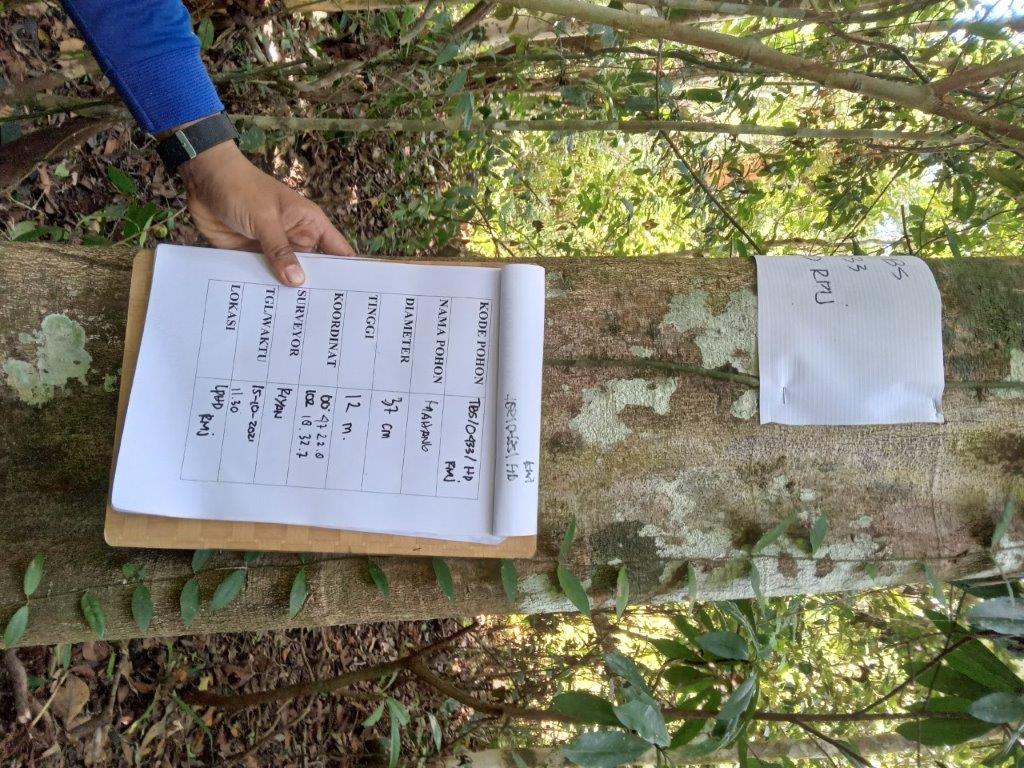 BS
33
RMJ
KODE POHON TBS/0433/HD
RMJ
NAMA POHON MAHANG
DIAMETER 37 cm
TINGGI 12 m.
KOORDINAT 00° 47 22.0
102 18.32.7
SURVEYOR RIYAN
TGL/WAKTU 15-10-2021
11.30
LOKASI LPHD
RMJ